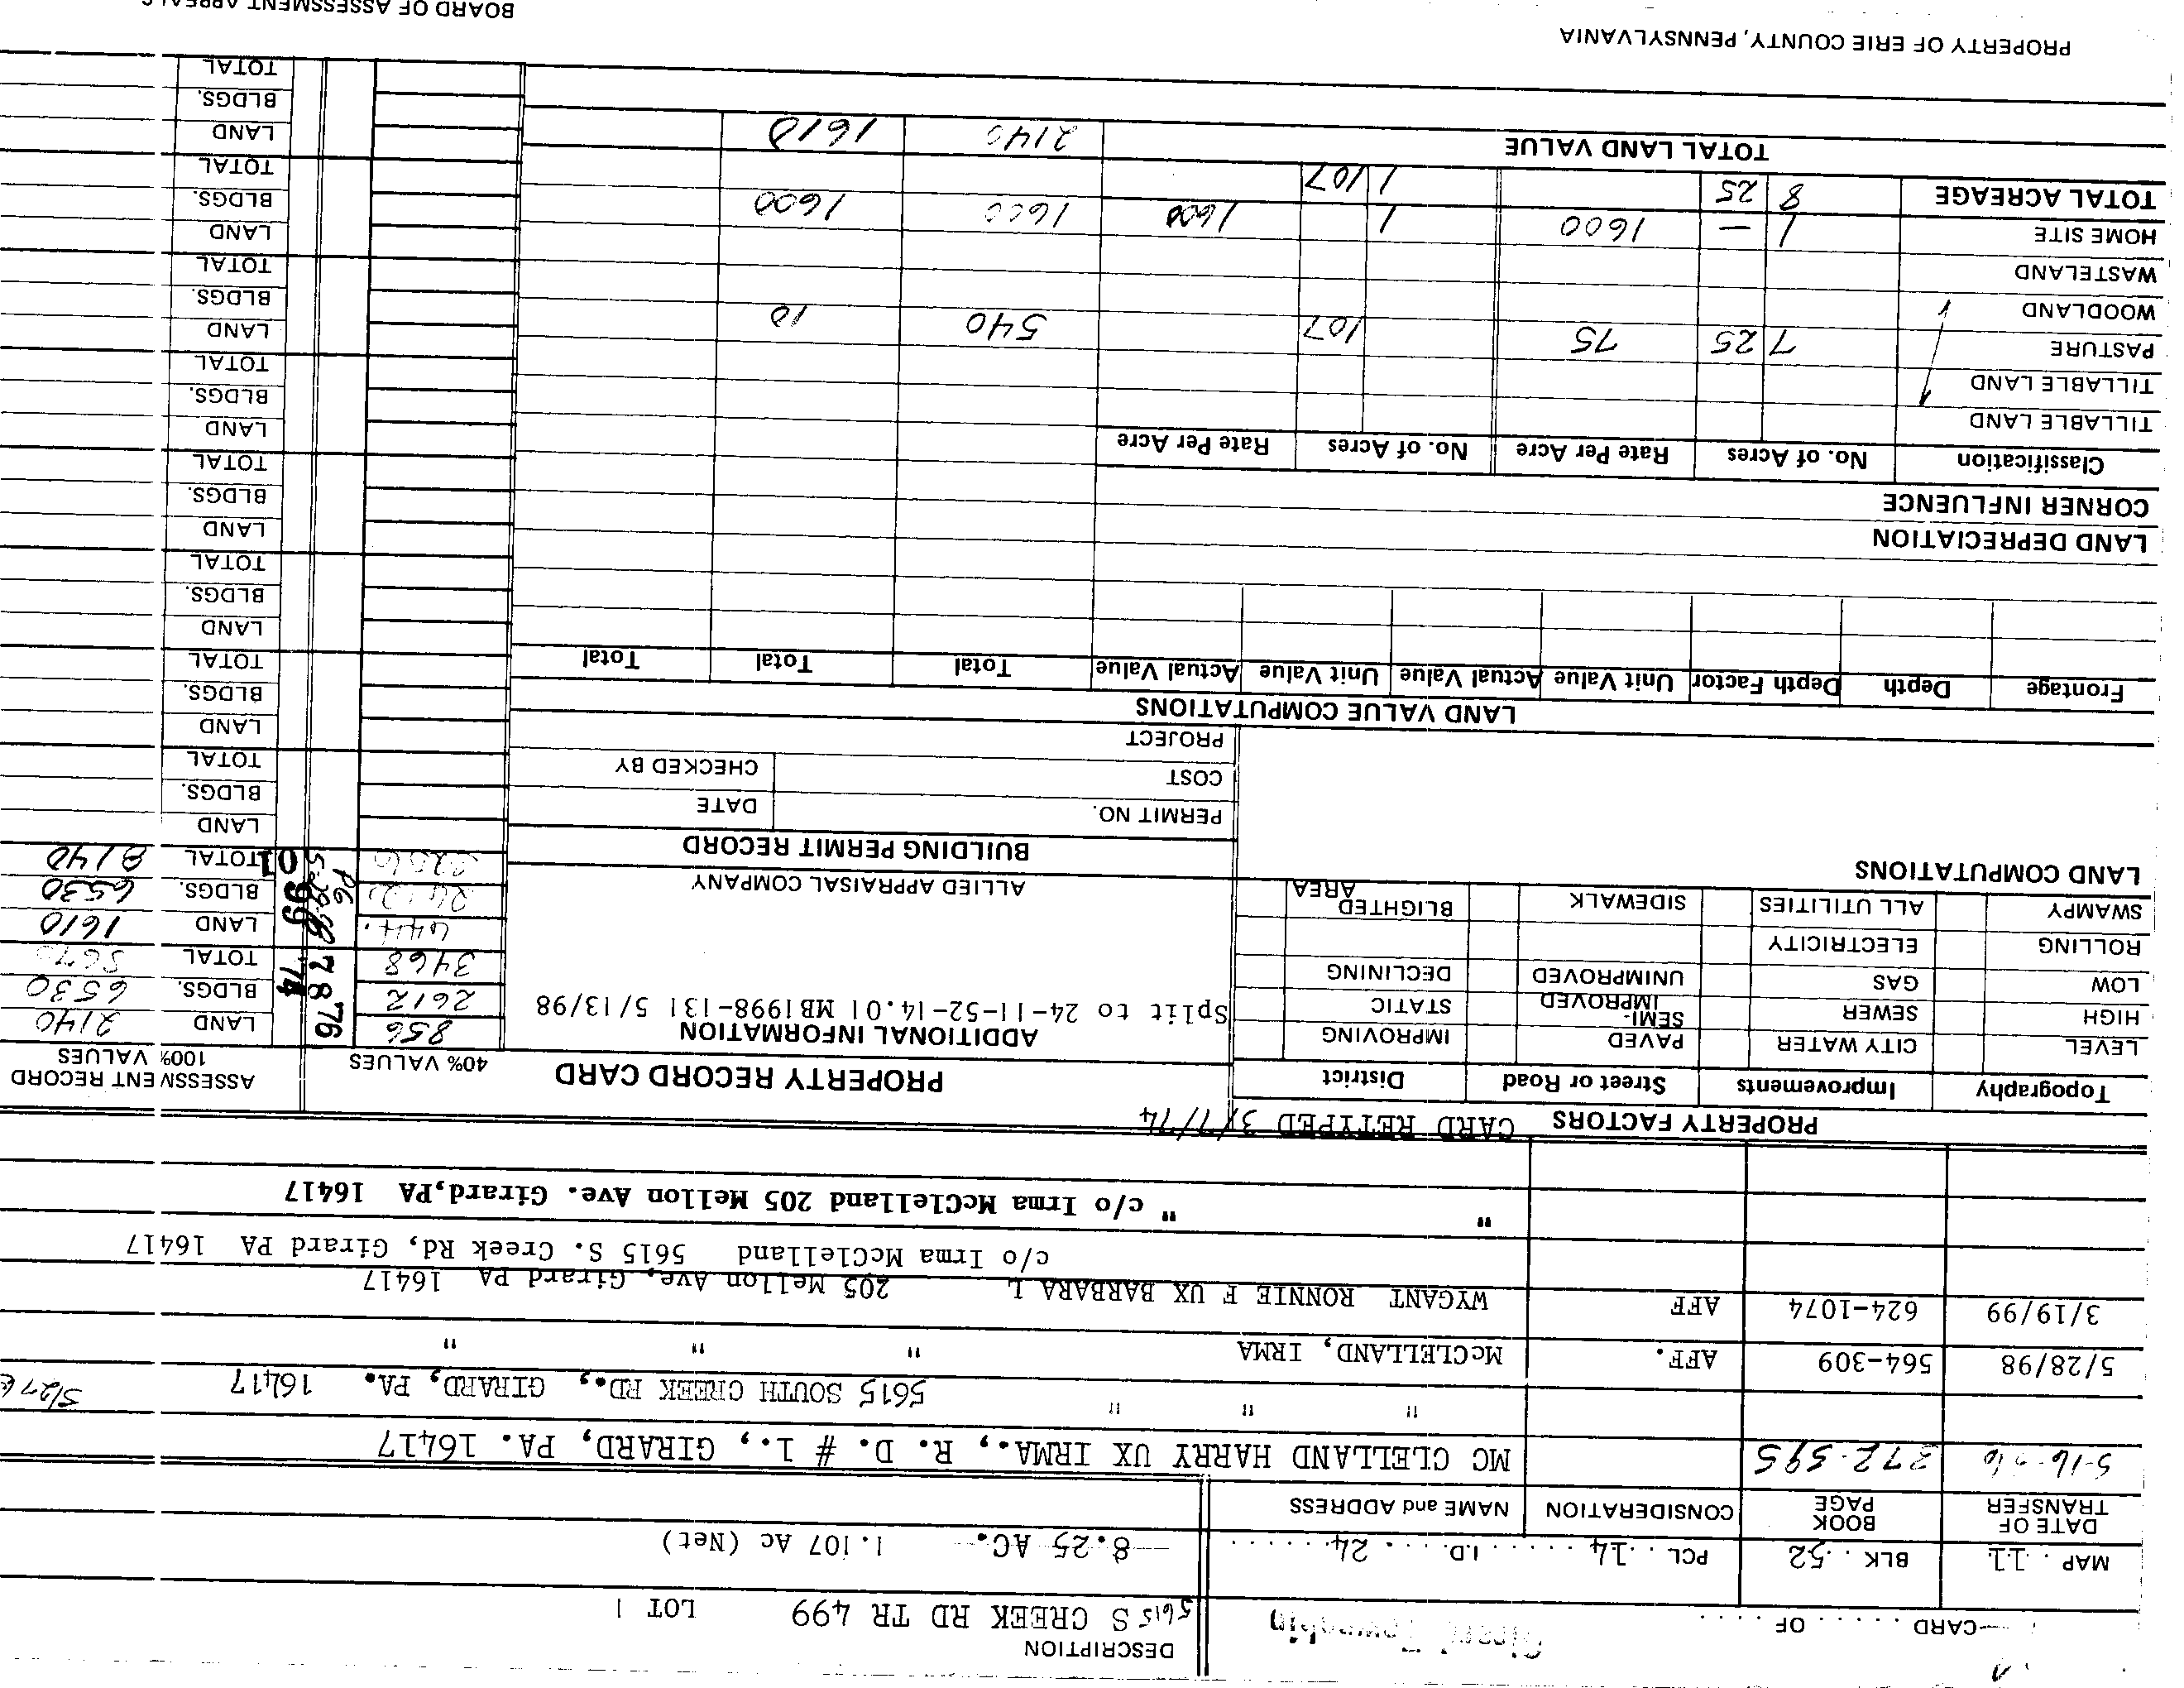 CARD . . . . . . OF . . . .
Girard Township
DESCRIPTION
5615 S CREEK RD TR 499 LOT 1
MAP . 11. BLK . . 52 PCL . . 14 . . . . . . I.D. . . . 24. . . . . .
8.25 AC. 1.107 Ac (Net)
DATE OF TRANSFER BOOK PAGE CONSIDERATION NAME and ADDRESS
5-16-56 372-595 MC CLELLAND HARRY UX IRMA., R. D. # 1., GIRARD, PA. 16417
" " " 5615 SOUTH CREEK RD., GIRARD, PA. 16417
5/28/98 564-309 AFF. McCLELLAND, IRMA " " "
3/19/99 624-1074 AFF WYGANT RONNIE F UX BARBARA L 205 Mellon Ave, Girard PA 16417
c/o Irma McClelland 5615 S. Creek Rd, Girard PA 16417
" " c/o Irma McClelland 205 Mellon Ave. Girard,PA 16417
PROPERTY FACTORS CARD RETYPED 3/7/74
Topography Improvements Street or Road District PROPERTY RECORD CARD 40% VALUES ASSESSMENT RECORD 100% VALUES
LEVEL CITY WATER PAVED IMPROVING ADDITIONAL INFORMATION 856 76 LAND 2140
HIGH SEWER SEMI-IMPROVED STATIC Split to 24-11-52-14.01 MB1998-131 5/13/98 2612 78 BLDGS. 6530
LOW GAS UNIMPROVED DECLINING 3468 74 TOTAL 8670
ROLLING ELECTRICITY 644. 99 LAND 1610
SWAMPY ALL UTILITIES SIDEWALK BLIGHTED AREA ALLIED APPRAISAL COMPANY 2612 BLDGS. 6530
LAND COMPUTATIONS BUILDING PERMIT RECORD 3256 01 TOTAL 8140
PERMIT NO. DATE LAND
COST CHECKED BY BLDGS.
PROJECT TOTAL
LAND VALUE COMPUTATIONS LAND
Frontage Depth Depth Factor Unit Value Actual Value Unit Value Actual Value Total Total Total BLDGS.
TOTAL
LAND
BLDGS.
LAND DEPRECIATION TOTAL
CORNER INFLUENCE LAND
BLDGS.
Classification No. of Acres Rate Per Acre No. of Acres Rate Per Acre TOTAL
TILLABLE LAND LAND
TILLABLE LAND BLDGS.
PASTURE 7 25 75 107 540 10 TOTAL
WOODLAND LAND
WASTELAND BLDGS.
HOME SITE 1 — 1600 1 1600 1600 1600 TOTAL
TOTAL ACREAGE 8 25 1 107 LAND
BLDGS.
TOTAL LAND VALUE 2140 1610 TOTAL
LAND
BLDGS.
TOTAL
PROPERTY OF ERIE COUNTY, PENNSYLVANIA BOARD OF ASSESSMENT APPEALS